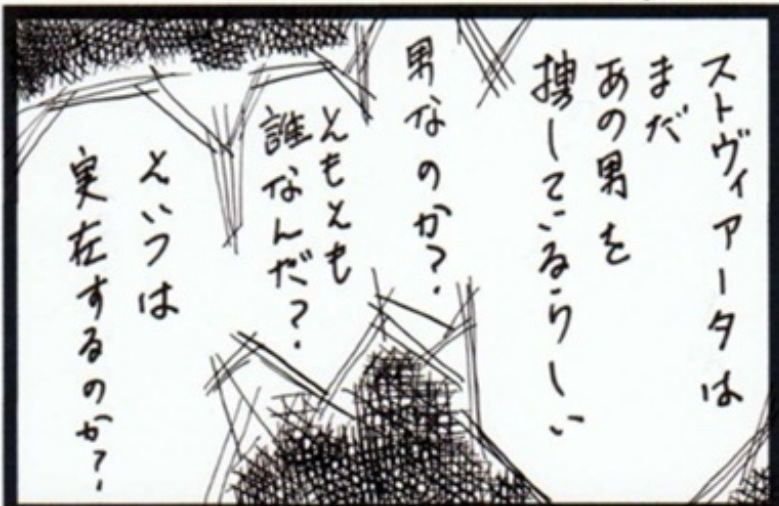 ストヴィアータは
まだ
あの男を
捜しているらしい
男なのか?
そもそも
誰なんだ?
そいつは
実在するのか?